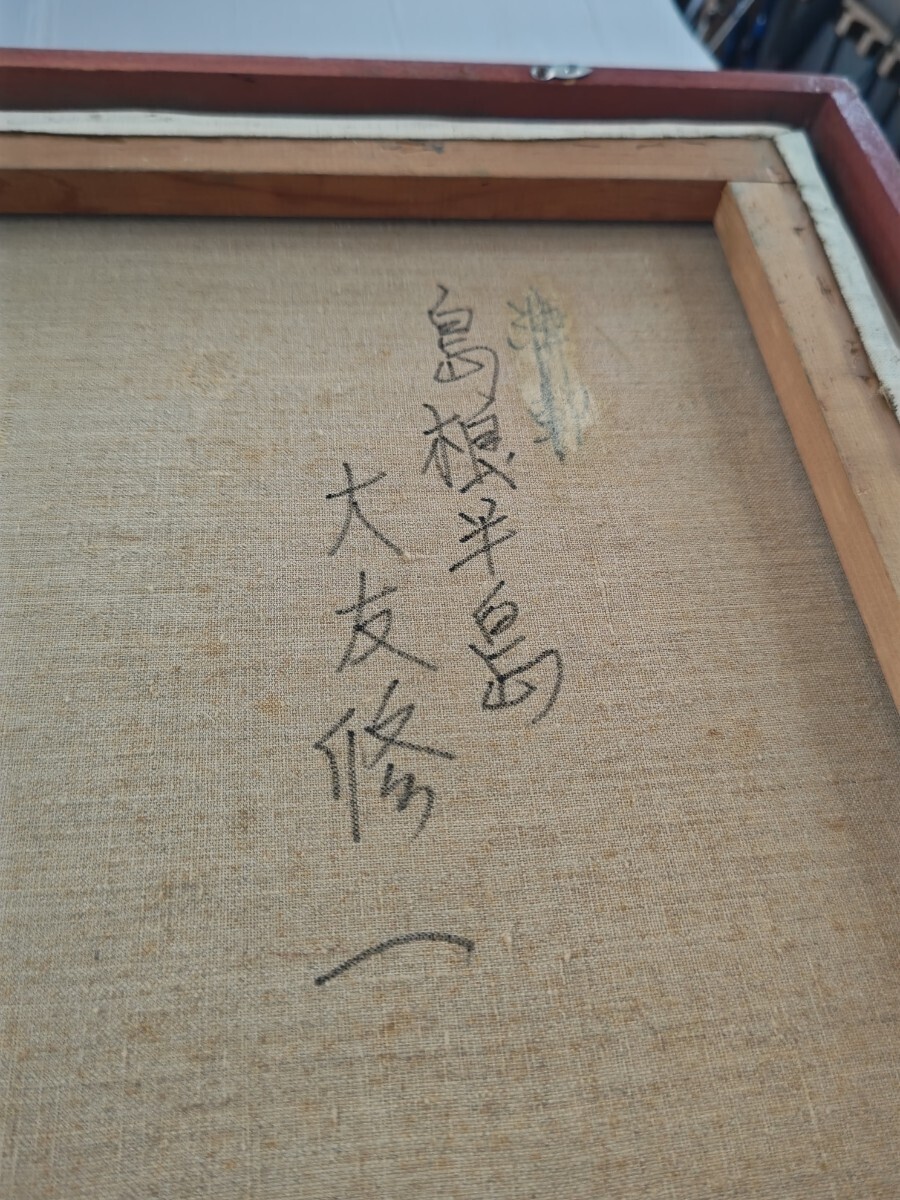 島根半島
大友修一